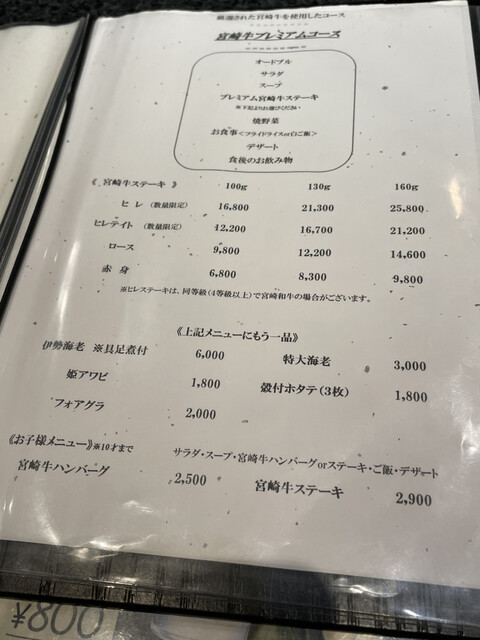 厳選された宮崎牛を使用したコース
宮崎牛プレミアムコース
オードブル
サラダ
スープ
プレミアム宮崎牛ステーキ
※下記よりお選びください
焼野菜
お食事<フライドライスor白ご飯>
デザート
食後のお飲み物
《 宮崎牛ステーキ 》 100g 130g 160g
ヒレ (数量限定) 16,800 21,300 25,800
ヒレテイト (数量限定) 12,200 16,700 21,200
ロース 9,800 12,200 14,600
赤身 6,800 8,300 9,800
※ヒレステーキは、同等級(4等級以上)で宮崎和牛の場合がございます。
《上記メニューにもう一品》
伊勢海老 ※具足煮付 6,000 特大海老 3,000
姫アワビ 1,800 殻付ホタテ(3枚) 1,800
フォアグラ 2,000
《お子様メニュー》※10才まで サラダ・スープ・宮崎牛ハンバーグorステーキ・ご飯・デザート
宮崎牛ハンバーグ 2,500 宮崎牛ステーキ 2,900
¥800